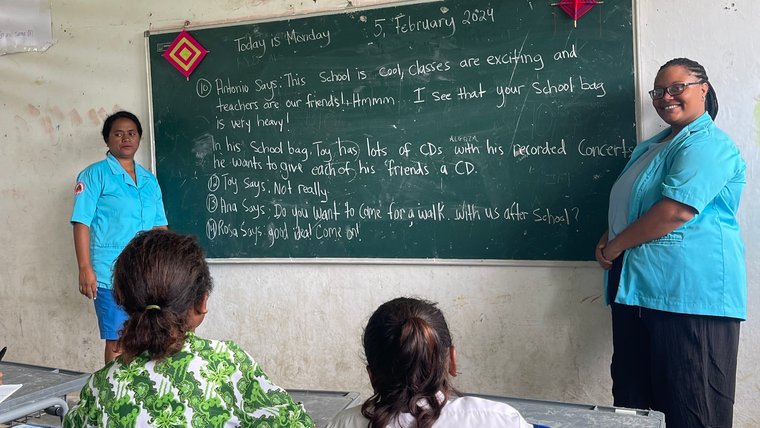 Today is Monday 5, February 2024
10 Antonio Says: This School is Cool, classes are exciting and
teachers are our friends! Hmmm I see that your School bag
is very heavy!
In his School bag, Toy has lots of CDs with his recorded Concerts
he wants to give each of his friends a CD.
12 Toy Says: Not really
13 Ana Says: Do you want to come for a walk with us after School?
14 Rosa Says: good idea! Come on!